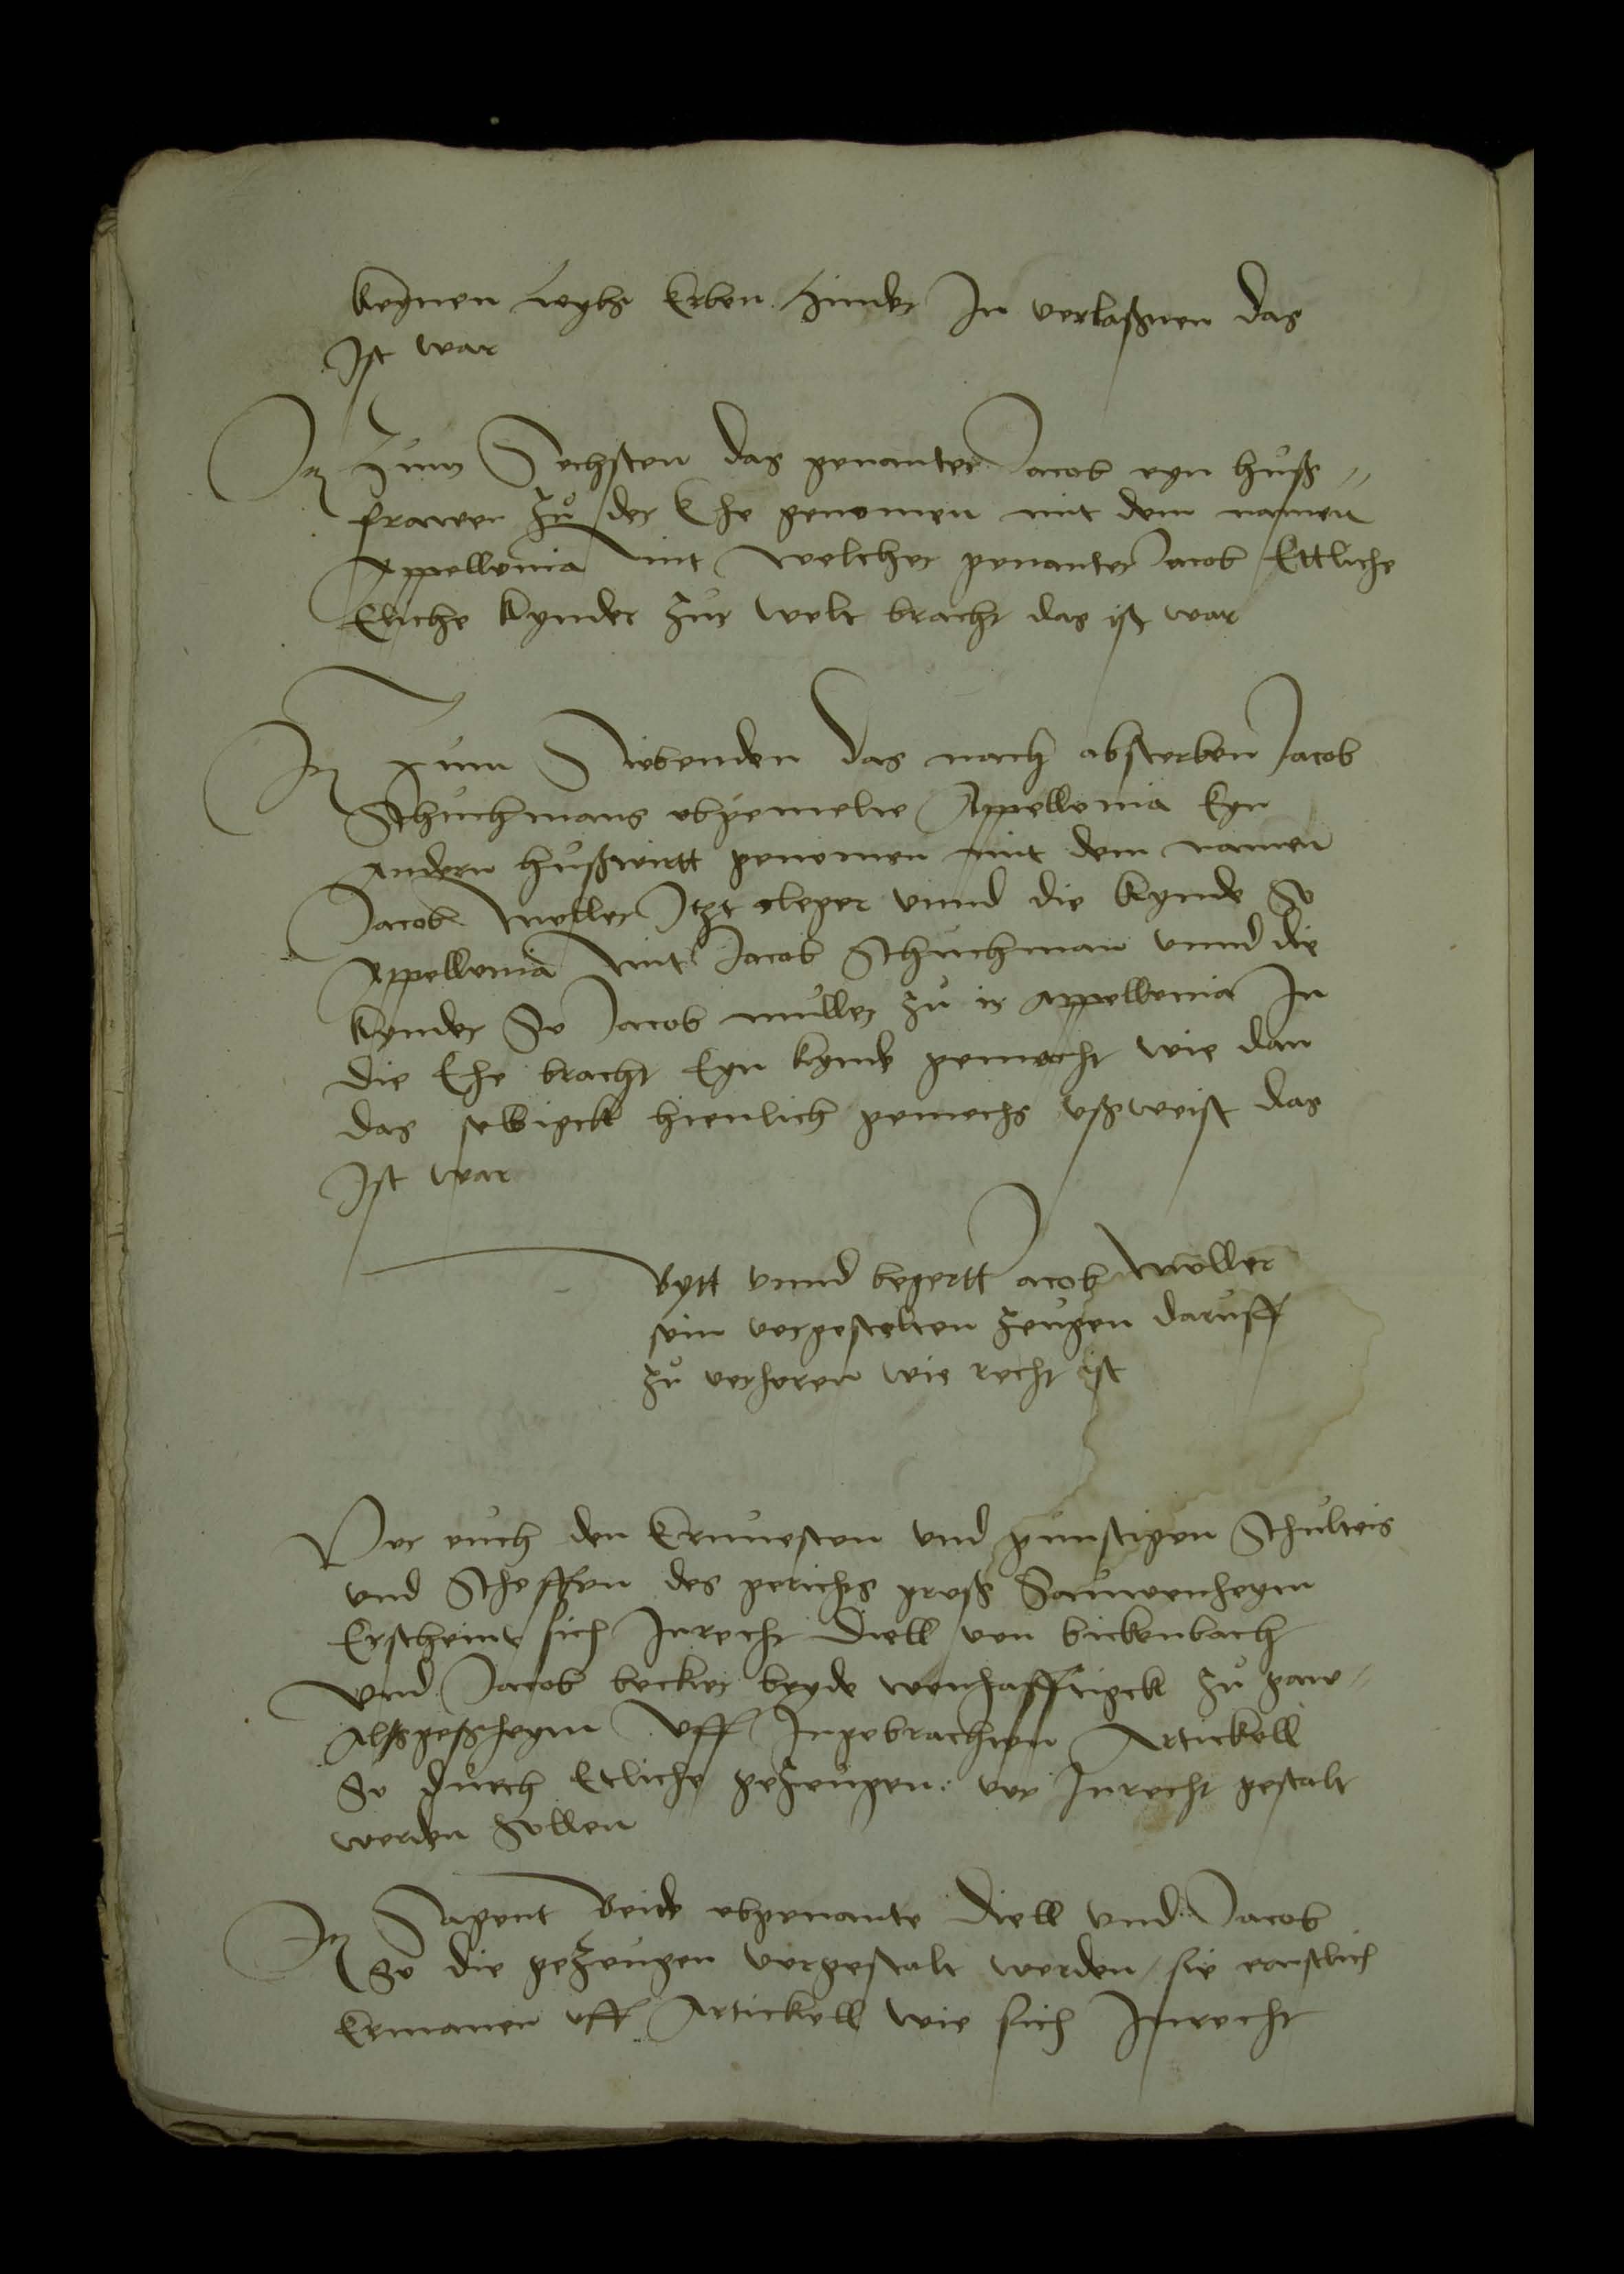 keynen leybs Erben hinder In verlaßnen das
Ist war
It Zum Sechsten das genanter Jacob eyn huß//
frawen zů der Ehe genomen mit dem namen
Appellonia mit welcher genanter Jacob Ettliche
Eliche kynder zur welt bracht das ist war
It Zum Siebenden das nach absterben Jacob
Schuchmans obgemelte Appellonia Eyn
andern hußwirtt genomen mit dem namen
Jacob muller Itzt cleger vnnd die kynde So
Appellonia mit Jacob Schuchman vnnd die
kynder So Jacob muller zu ir Appellonia In
die Ehe bracht Eyn kynde gemacht wie dan
das selbigk hienlich gemechs vßweist das
Ist war
Bytt vnnd begertt Jacob Muller
sein vorgestelten zeugen daruff
zů verhoren wie recht ist
Vor euch den Ernuesten vnd gunstigen Schulteis
vnd Scheffen des gerichts groß Sauwenheym
Erscheint sich Inrecht Diell von bickenbach
vnd Jacob becker beyde wonhafftigk zů gaw//
Alßgeßheym vff Ingebrachten Artickell
So durch Etliche gezeugen vor Inrecht gestalt
werden sollen
It Sagent Beide obgenante Diell vnd Jacob
So die gezeugen vorgestalt werden sie ernstlich
Ermanen vff Artickell wie sich Inrecht